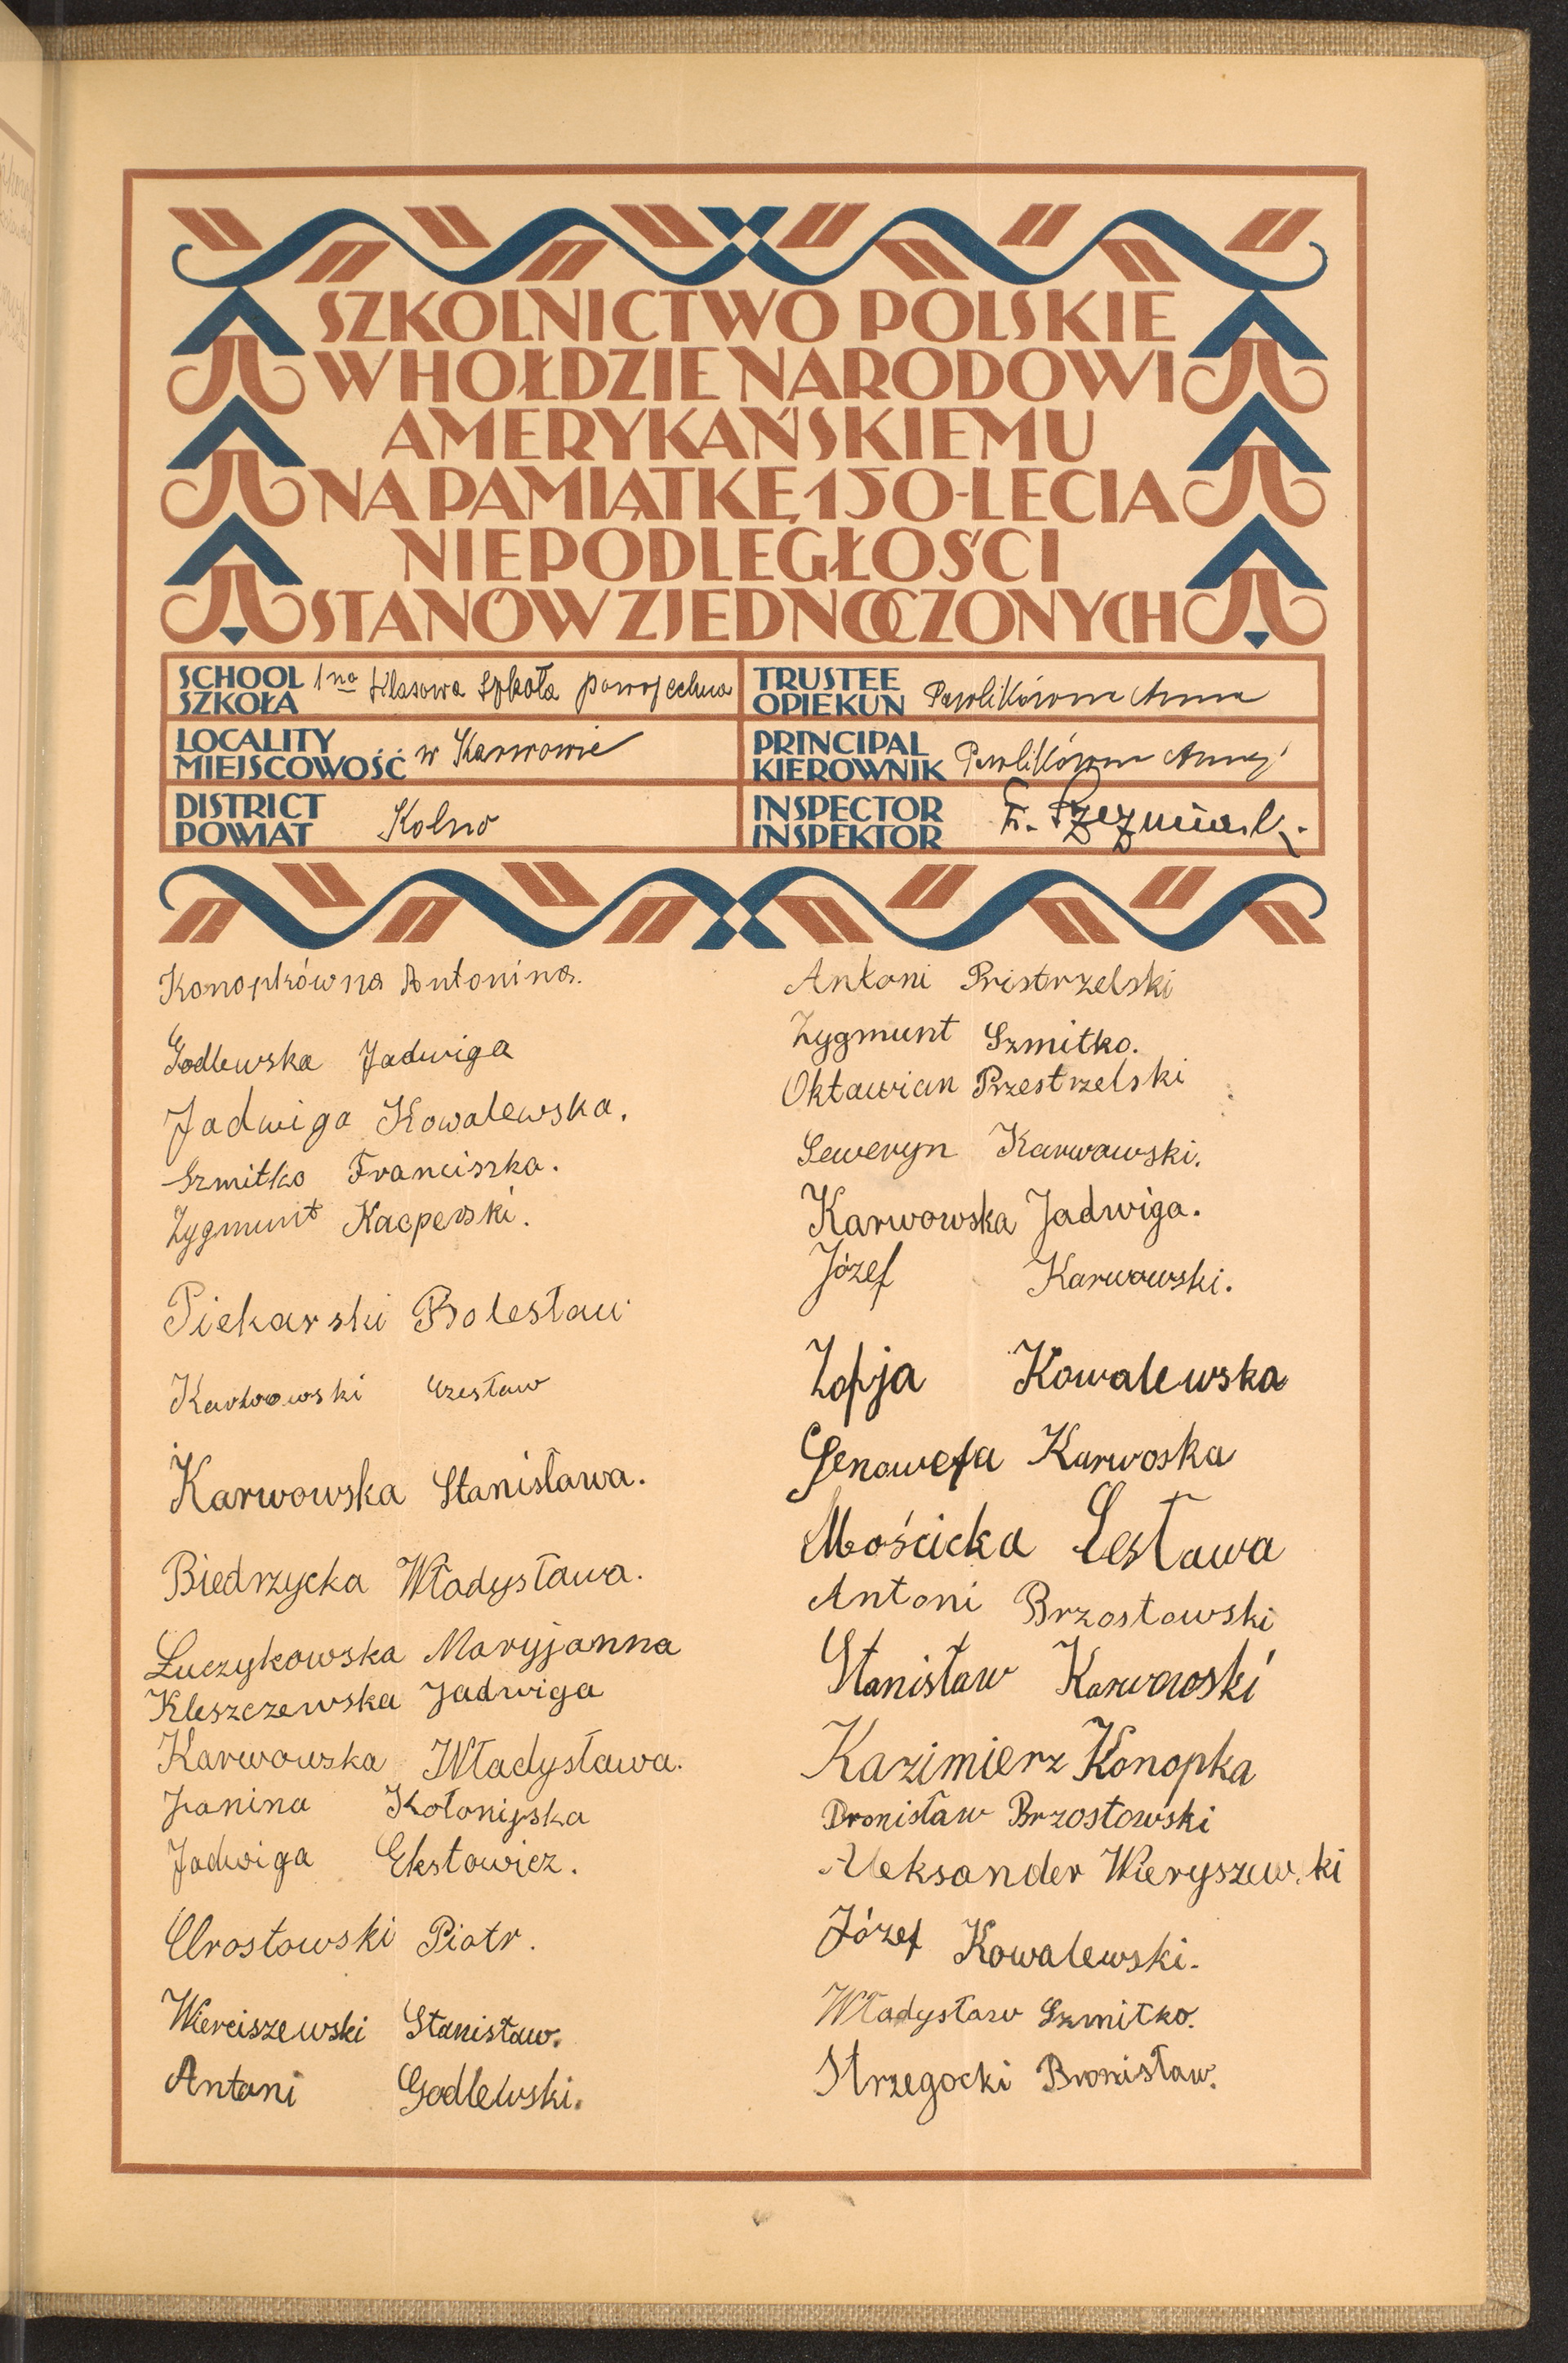 SZKOLNICTWO POLSKIE
W HOŁDZIE NARODOWI
AMERYKAŃSKIEMU
NA PAMIĄTKĘ 150-LECIA
NIEPODLEGŁOŚCI
STANÓW ZJEDNOCZONYCH
SCHOOL
SZKOŁA
1na klasowa szkoła powszechna
LOCALITY
MIEJSCOWOŚĆ
w Karwowie
DISTRICT
POWIAT
Kolno
TRUSTEE
OPIEKUN
Pawlikówna Anna
PRINCIPAL
KIEROWNIK
Pawlikówna Anna
INSPECTOR
INSPEKTOR
Konopkówna Antonina.
Godlewska Jadwiga
Jadwiga Kowalewska.
Szmitko Franciszka.
Zygmunt Kacperski.
Piekarski Bolesław
Karwowski Czesław
Karwowska Stanisława.
Biedrzycka Władysława.
Łuczykowska Maryjanna
Kleszczewska Jadwiga
Karwowska Władysława.
Janina Kołonijska
Jadwiga Ekstowicz.
Chrostowski Piotr.
Wierciszewski Stanisław.
Antoni Godlewski.
Antoni Pristrzelski
Zygmunt Szmitko.
Oktawian Przestrzelski
Seweryn Karwowski.
Karwowska Jadwiga.
Józef Karwowski.
Zofja Kowalewska
Genowefa Karwoska
Mościcka Cesława
Antoni Brzostowski
Stanisław Karwowski
Kazimierz Konopka
Bronisław Brzostowski
Aleksander Wieryszewski
Józef Kowalewski.
Władysław Szmitko.
Strzegocki Bronisław.